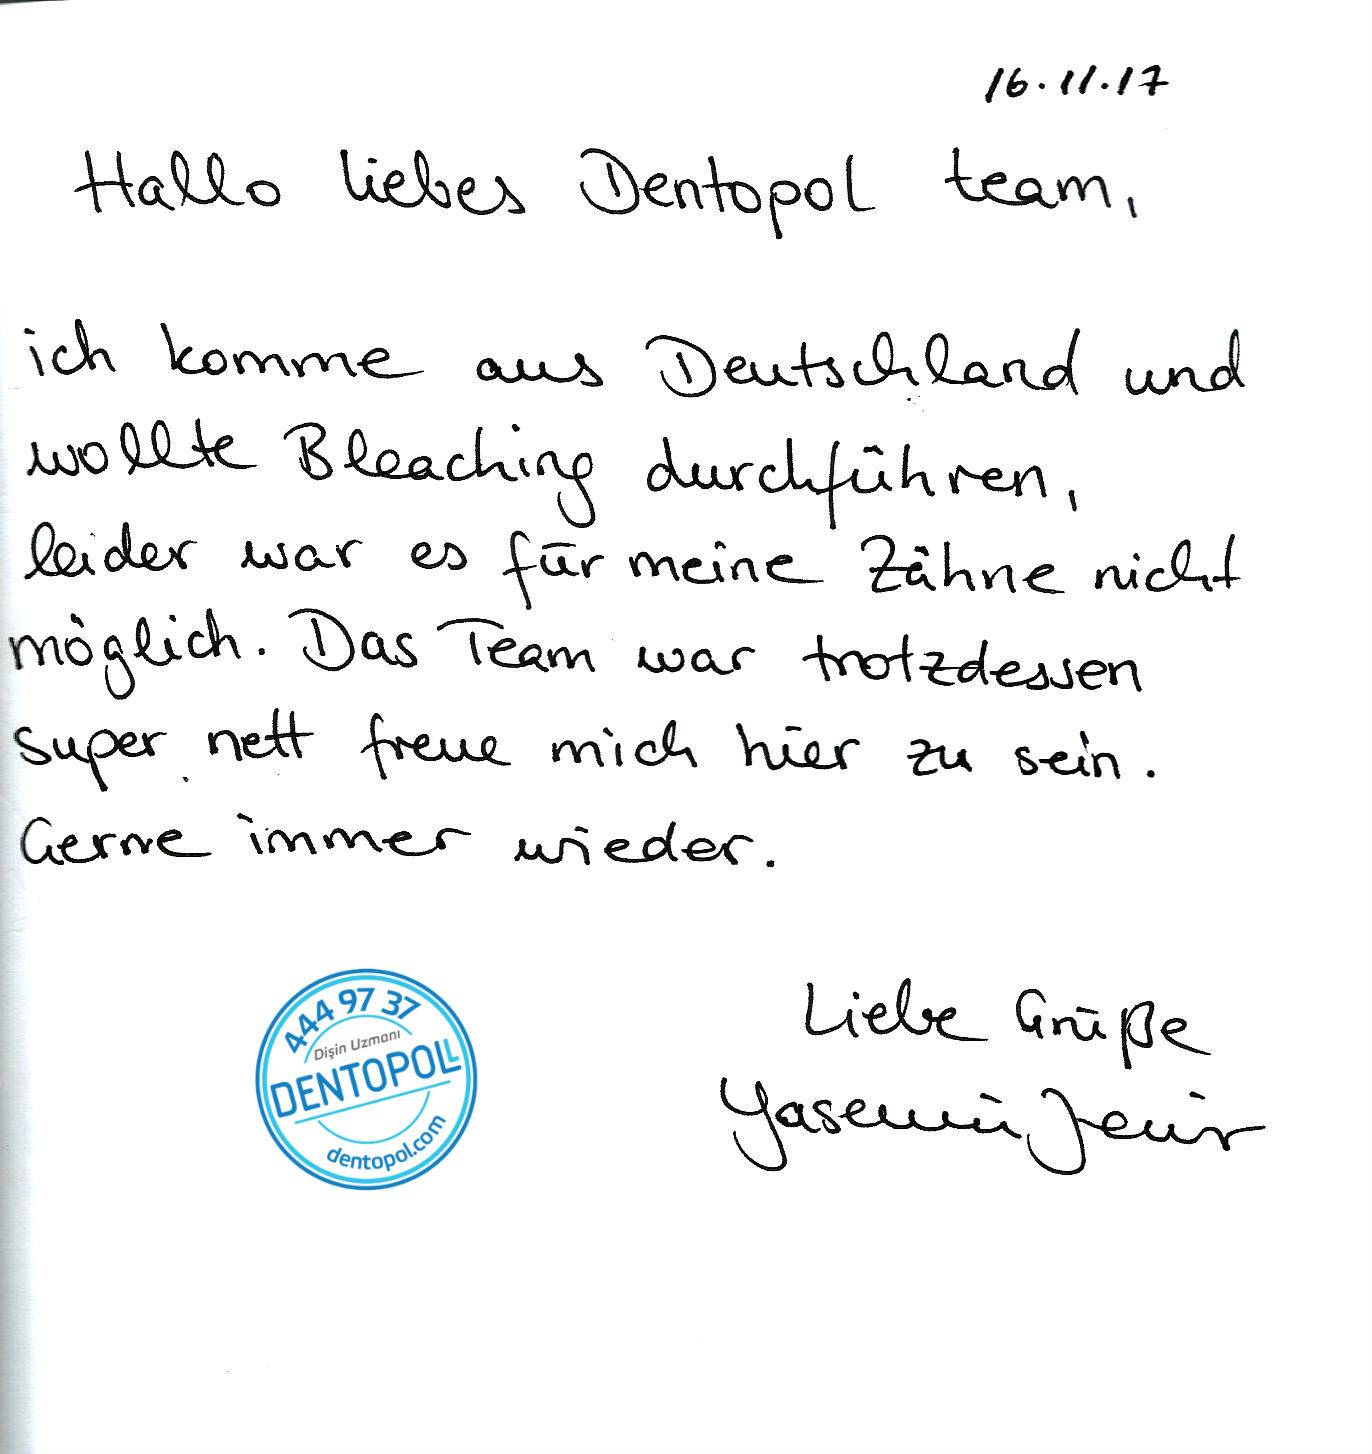 16.11.17
Hallo liebes Dentopol team,
ich komme aus Deutschland und
wollte Bleaching durchführen,
leider war es für meine Zähne nicht
möglich. Das Team war trotzdessen
super nett freue mich hier zu sein.
Gerne immer wieder.
Liebe Grüße
Yasemin
444 97 37
Dişin Uzmanı
DENTOPOLL
dentopol.com